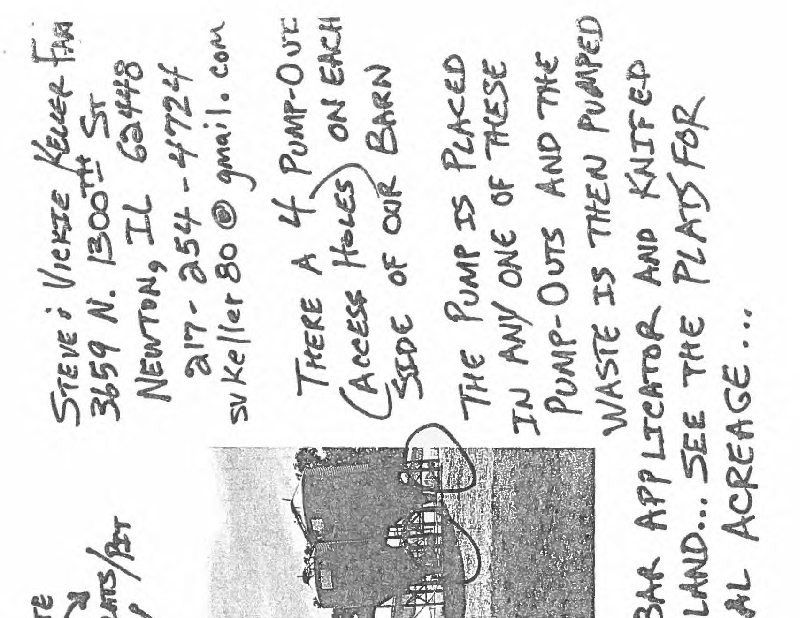 STEVE & VICKIE KELLER FAR
3659 N. 1300TH ST
NEWTON, IL 62448
217-254-4724
svkeller80@gmail.com
THERE A 4 PUMP-OUT
(ACCESS HOLES) ON EACH
SIDE OF OUR BARN
THE PUMP IS PLACED
IN ANY ONE OF THESE
PUMP-OUTS AND THE
WASTE IS THEN PUMPED
BAR APPLICATOR AND KNIFED
LAND... SEE THE PLATS FOR
AL ACREAGE...
TE
ATS/PIT